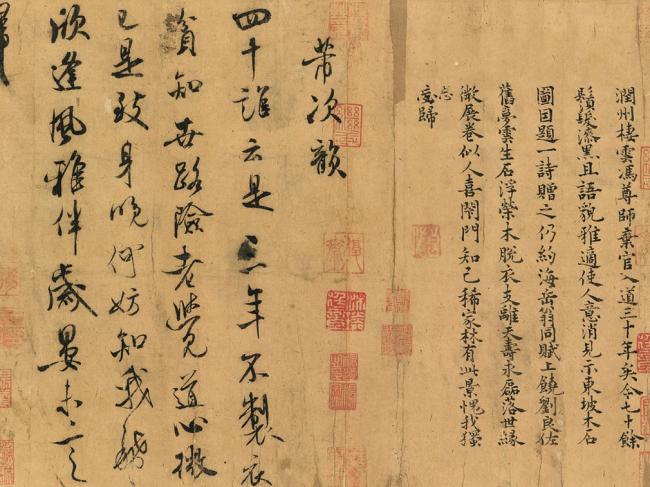 潤州棲雲馮尊師棄官入道三十年矣今七十餘
鬚髮漆黑且語貌雅適使人意消見示東坡木石
圖因題一詩贈之仍約海岳翁同賦上饒劉良佐
舊夢雲生石浮榮木脫衣支離天壽永磊落世緣
微展卷似人喜閉門知己稀家林有此景愧我獨
忘歸
芾次韻
四十誰云是三年不製衣
貧知世路險老覺道心微
已是致身晚何妨知我稀
欣逢風雅伴歲晏未言
歸